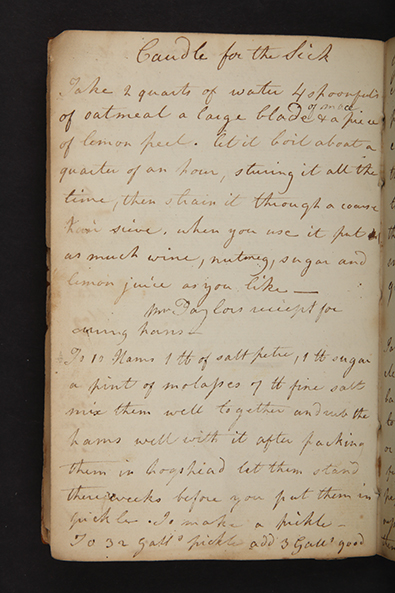 Caudle for the Sick
Take 2 quarts of water 4 spoonfuls
of oatmeal a large blade of mace & a piece
of lemon peel. let it boil about a
quarter of an hour, stiring it all the
time, then strain it through a coarse
hair sieve. when you use it put
as much wine, nutmeg, sugar and
lemon juice as you like —
Mr Taylors receipt for
curing hams —
To 12 Hams 1 lb of salt petre, 1 lb sugar
a pint of molasses 7 lb fine salt
mix them well together and rub the
hams well with it after packing
them in hogshead let them stand
three weeks before you put them in
pickle. To make a pickle —
To 32 Galls pickle add 3 Galls good